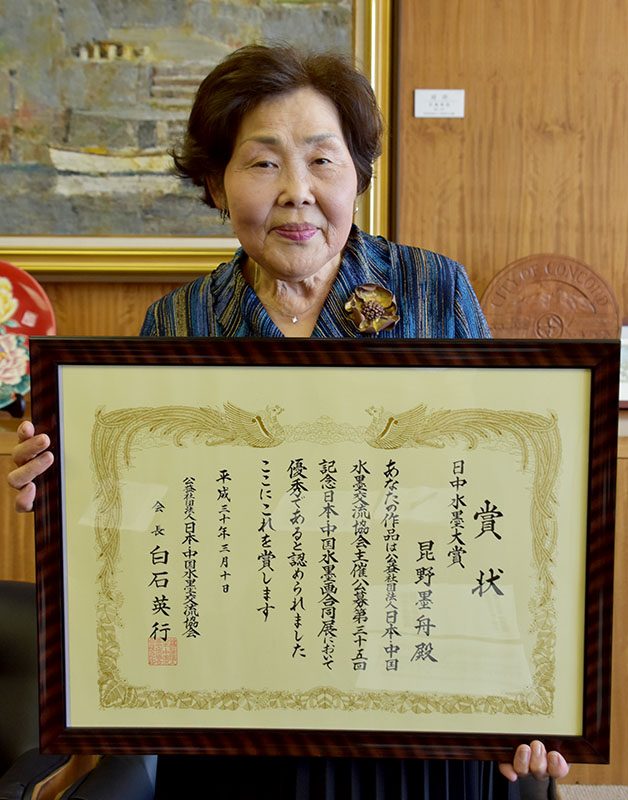 CITY OF CONCORD
賞状
日中水墨大賞
昆野墨舟殿
あなたの作品は公益社団法人日本・中国
水墨交流協会主催公募第三十五回
記念日本・中国水墨画合同展において
優秀であると認められました
ここにこれを賞します
平成三十年三月十日
公益社団法人日本・中国水墨交流協会
会長 白石英行